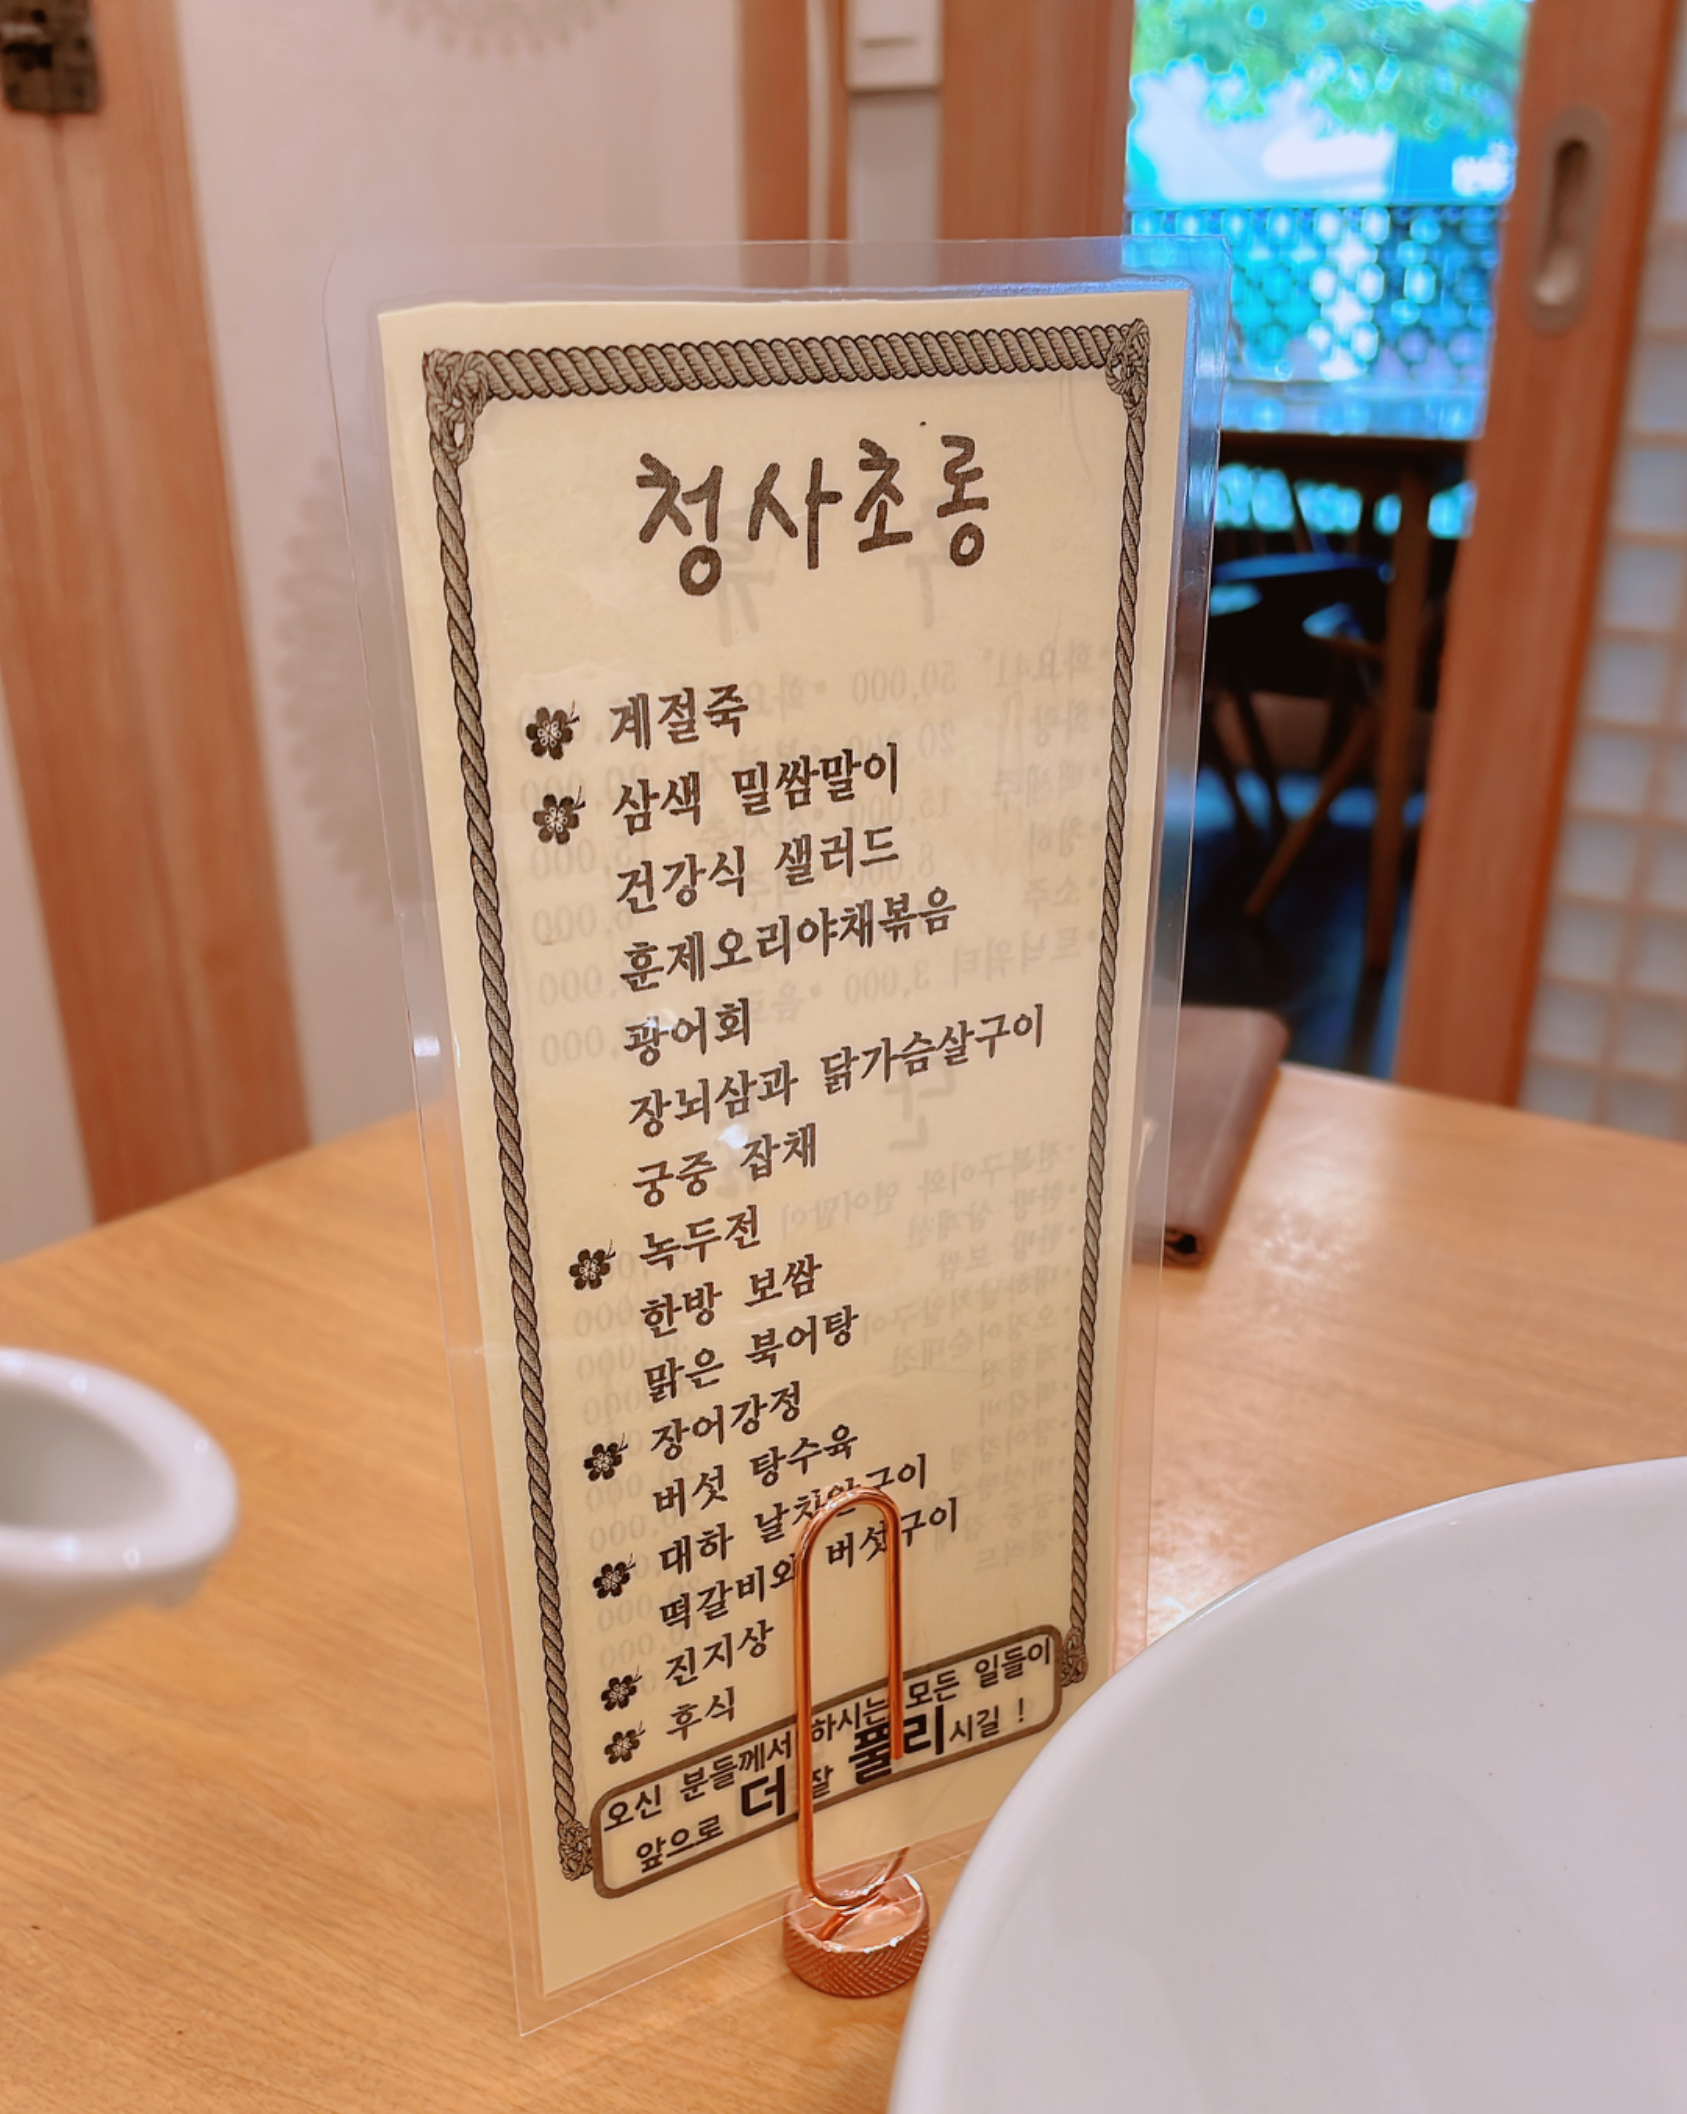 청사초롱
계절죽
삼색 밀쌈말이
건강식 샐러드
훈제오리야채볶음
광어회
장뇌삼과 닭가슴살구이
궁중 잡채
녹두전
한방 보쌈
맑은 북어탕
장어강정
버섯 탕수육
대하 날치알구이
떡갈비와 버섯구이
진지상
후식
오신 분들께서 하시는 모든 일들이
앞으로 더 잘 풀리시길 !